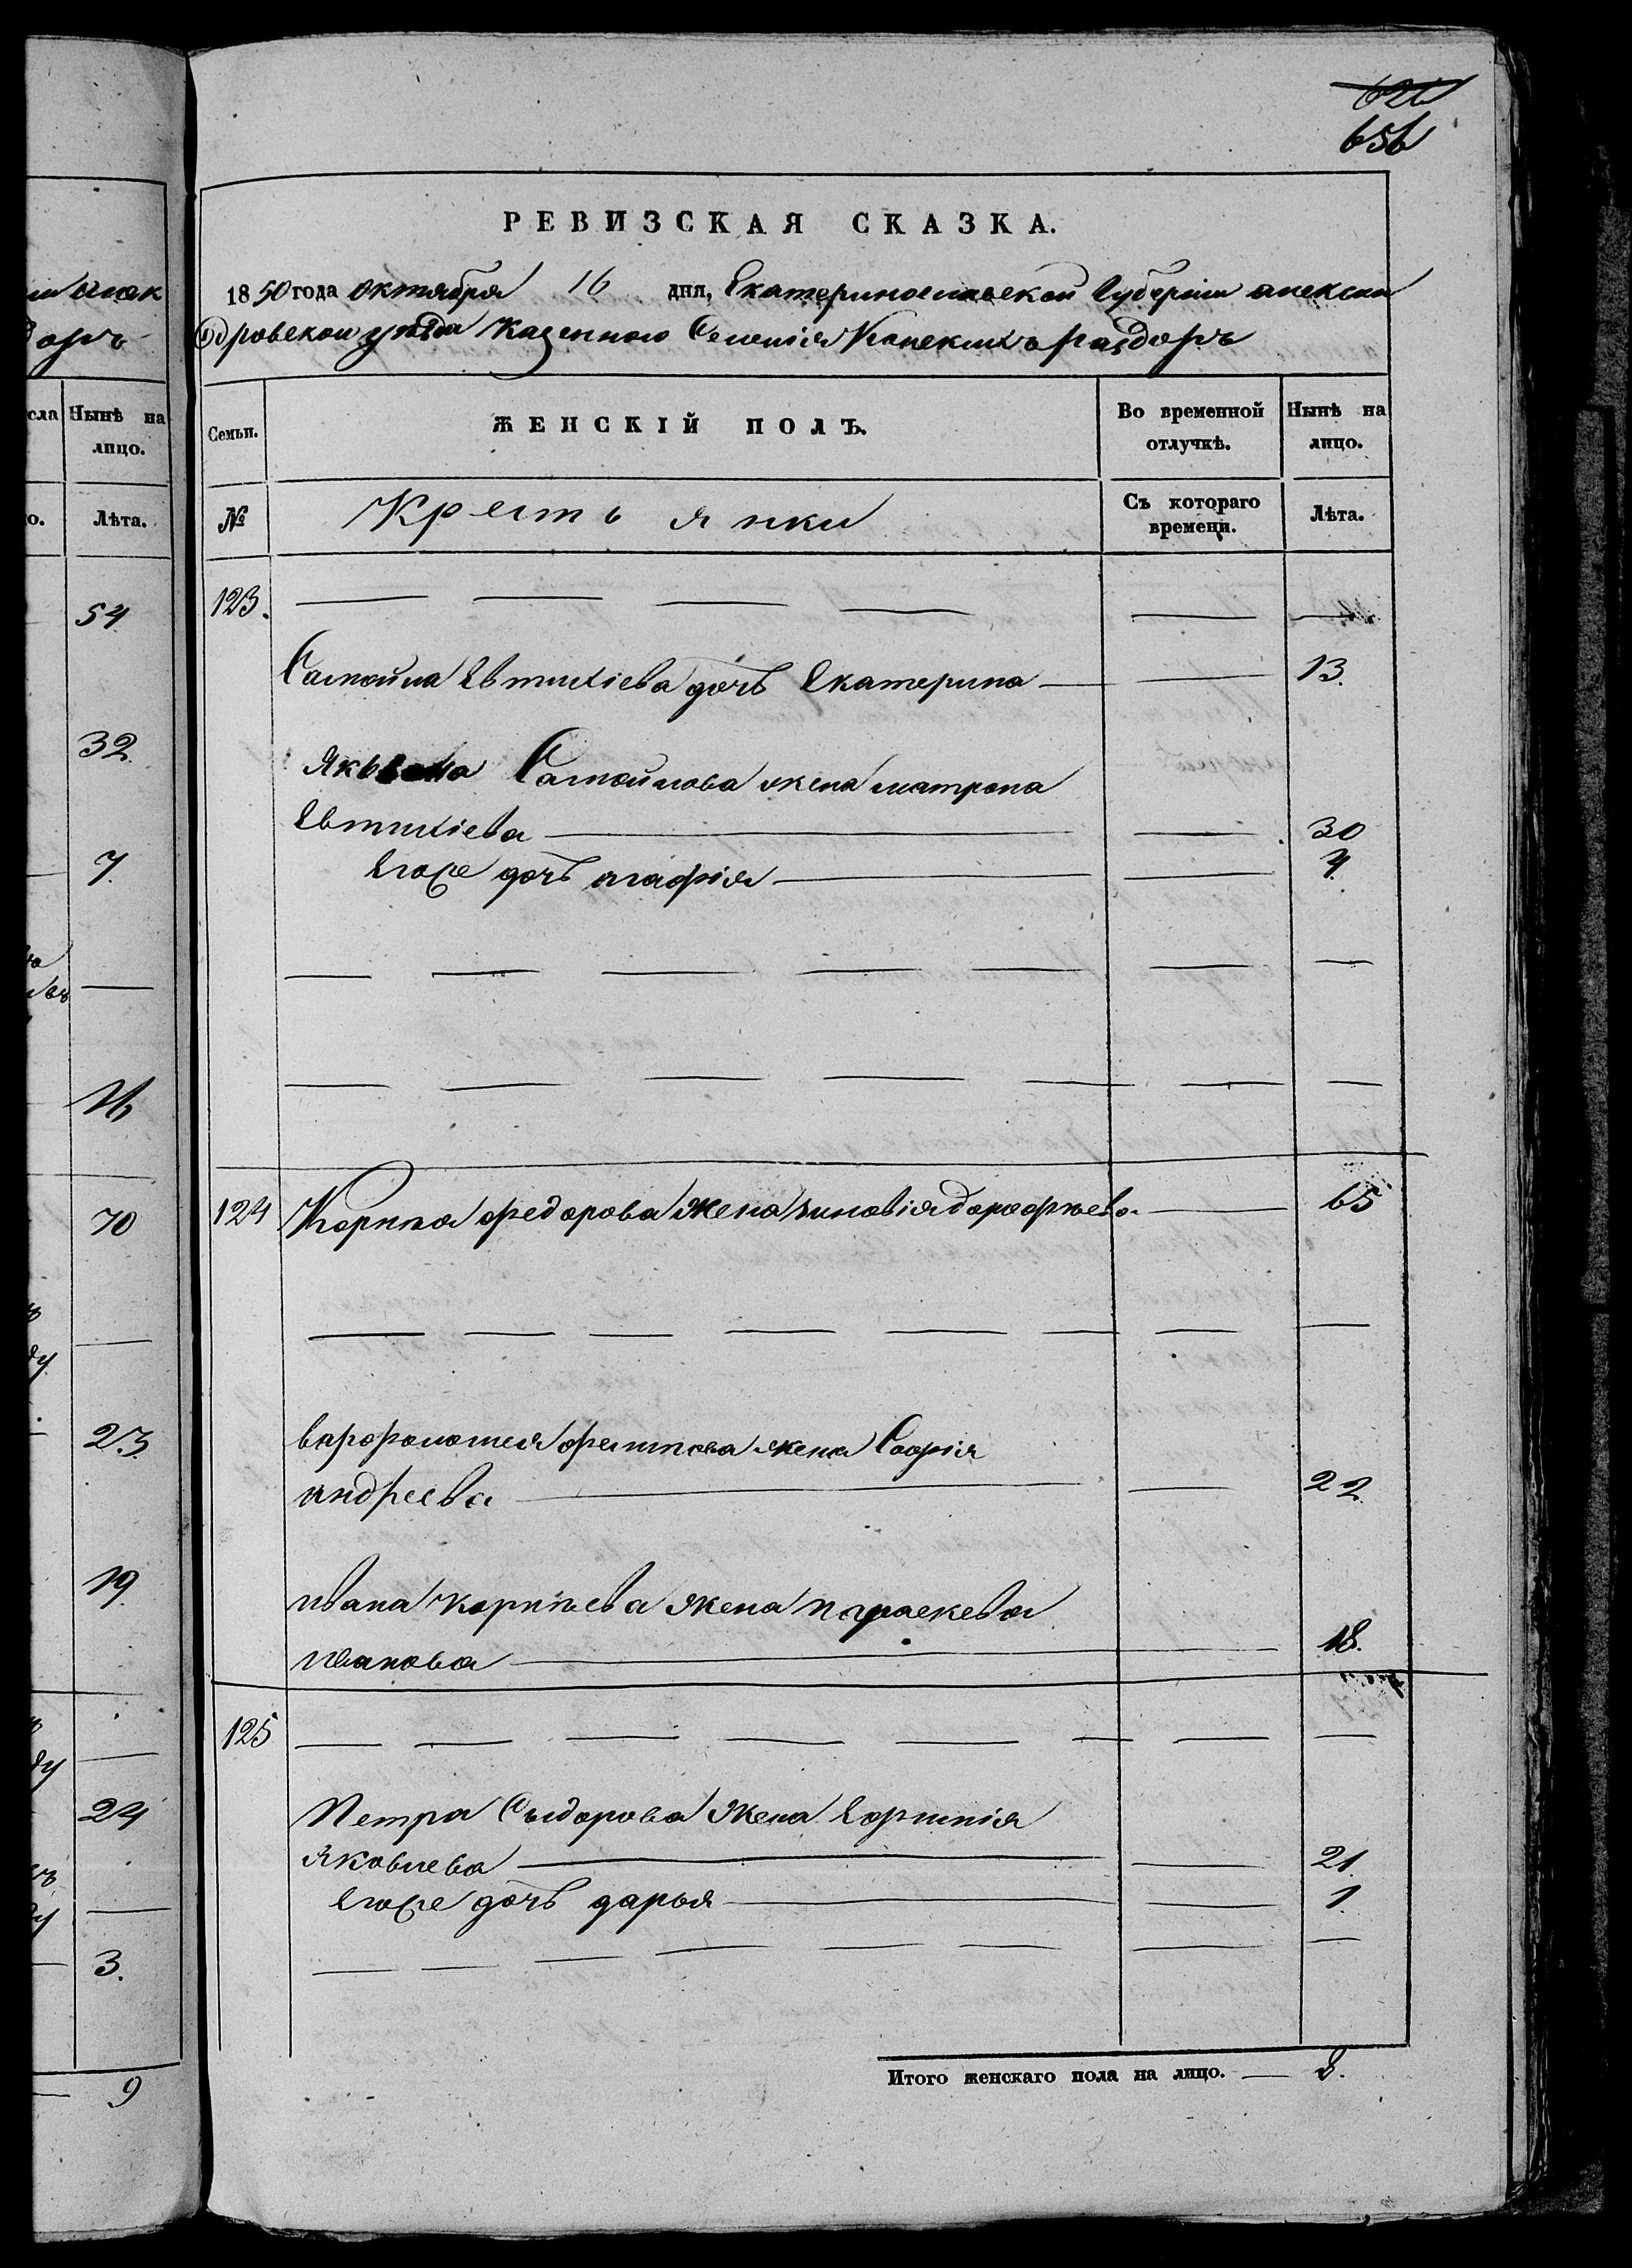 626
656
РЕВИЗСКАЯ СКАЗКА.
1850 года октября 16 дня, Екатеринославской Губернии алексан
дровскои уезда Казенного Селения Конскихъ раздоръ
Семьи.
ЖЕНСКІЙ ПОЛЪ.
Во временной отлучкѣ.
Нынѣ на лицо.
№
Крестьянки
Съ котораго времени.
Лѣта.
123.
Самойла Евтихіева дочь Екатерина 13.
Якова Самойлова жена матрона
Евтихіева 30
Егоже дочь агафія
124 Корнея федорова жена зиновія дорофѣева 65
варфоломея филипова жена Софія
андреева 22.
ивана корнѣева жена параскева
иванова 18.
125
Петра Сыдорова жена Ефимія
Яковлева 21
Егоже дочь дарья 1.
Итого женскаго пола на лицо. 8.
сла
Нынѣ на лицо.
о.
Лѣта.
54
32.
7.
70
23.
19.
24
3.
9